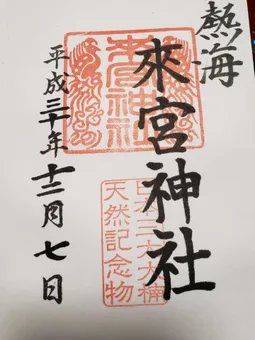 熱海
來宮神社
來宮神社
日本三大楠
天然記念物
平成三十年十二月七日